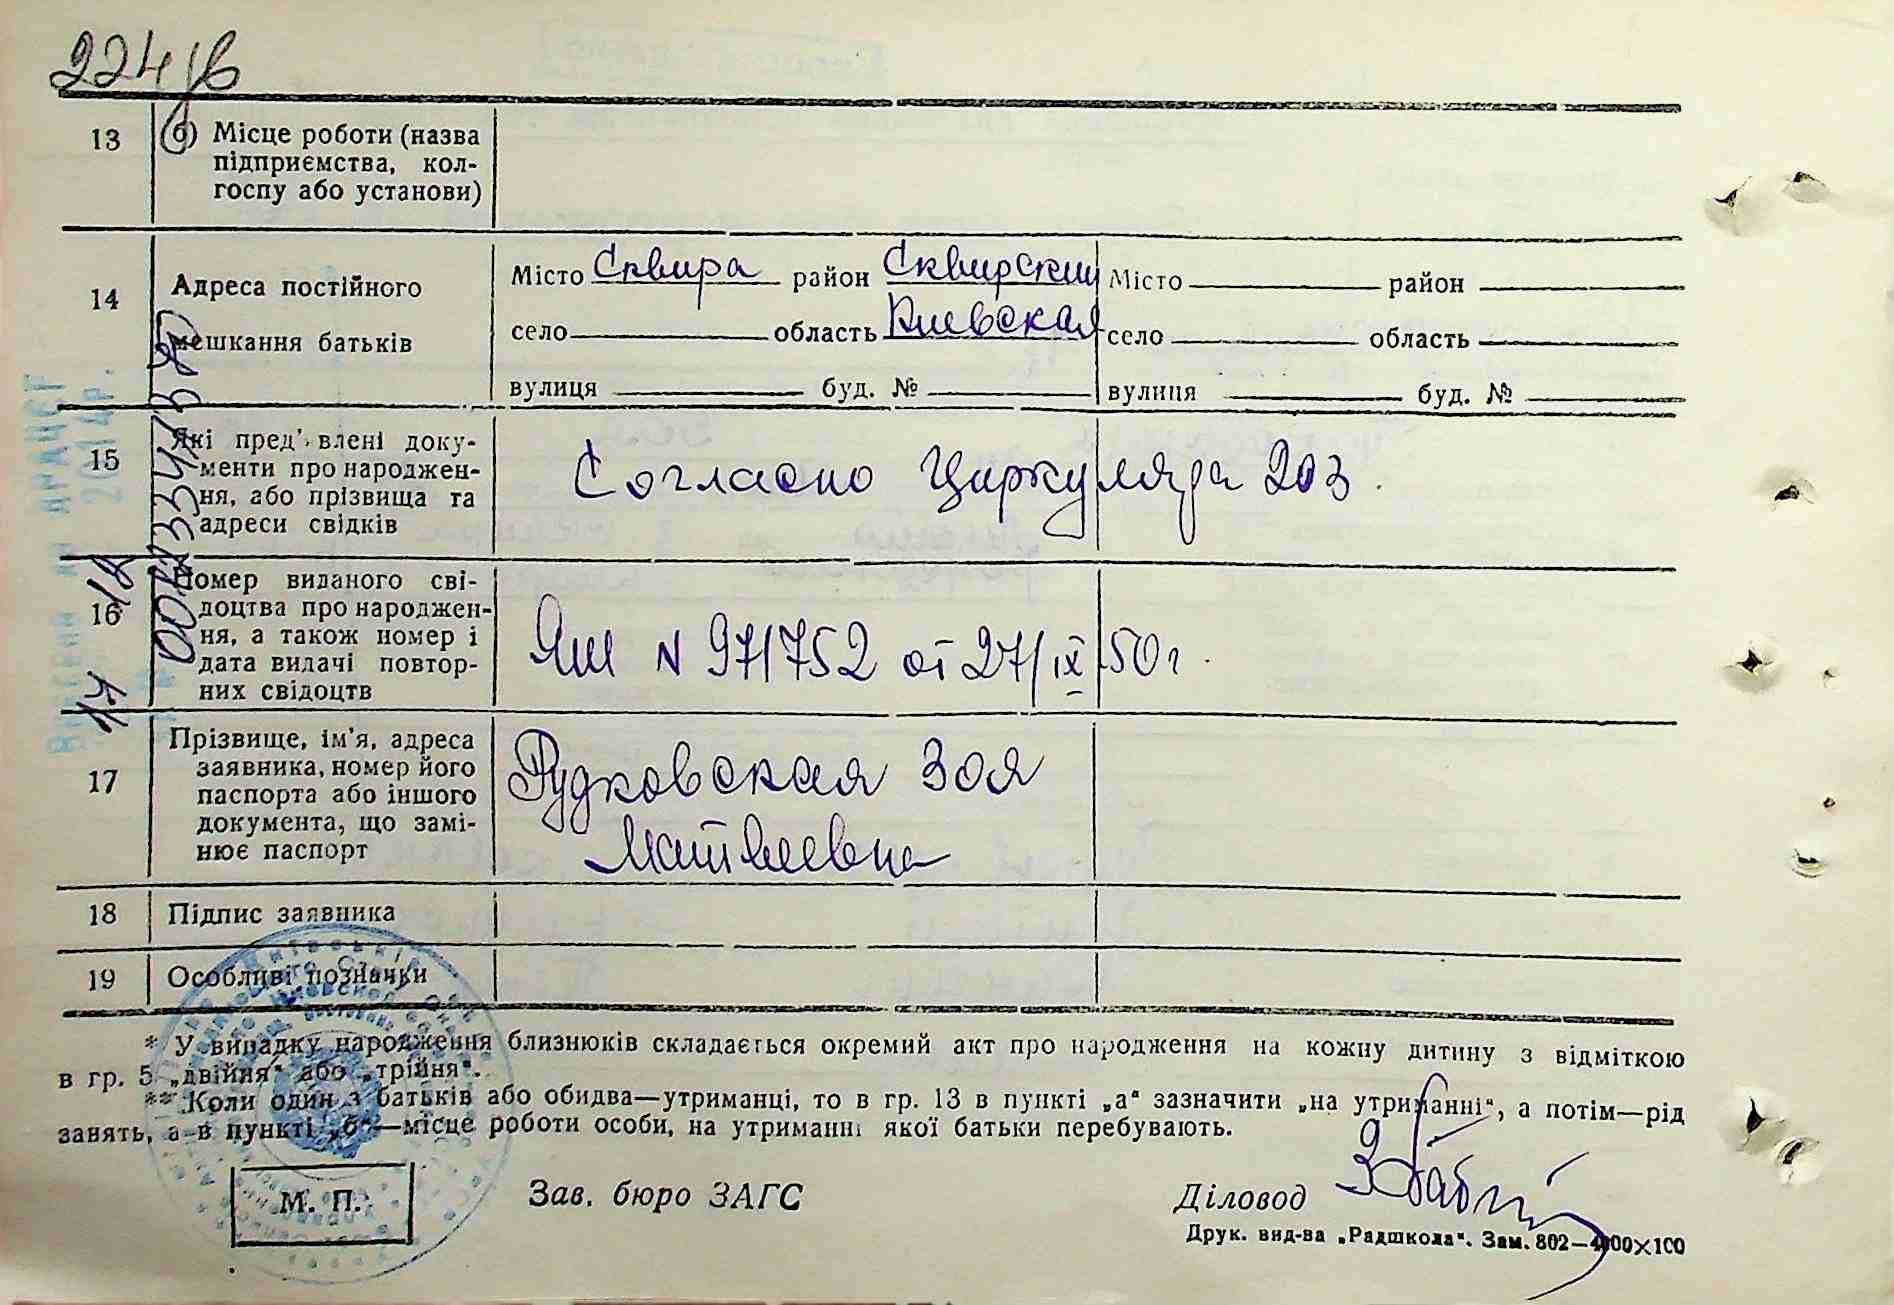 224
13
б) Місце роботи (назва
підприємства, кол-
госпу або установи)
14
Адреса постійного
мешкання батьків
Місто Сквира район Сквирский
село область Киевская
вулиця буд. №
Місто район
село область
вулиця буд. №
15
Які пред'влені доку-
менти про народжен-
ня, або прізвища та
адреси свідків
Согласно Циркуляра 203.
16
Номер виданого сві-
доцтва про народжен-
ня, а також номер і
дата видачі повтор-
них свідоцтв
ЯШ N 971752 от 27/IX 50 г.
17
Прізвище, ім'я, адреса
заявника, номер його
паспорта або іншого
документа, що замі-
нює паспорт
Рудковская Зоя
Матвеевна
18
Підпис заявника
19
Особливі позначки
* У випадку народження близнюків складається окремий акт про народження на кожну дитину з відміткою
в гр. 5 „двійня“ або „трійня“.
** Коли один з батьків або обидва—утриманці, то в гр. 13 в пункті „а“ зазначити „на утриманні“, а потім—рід
занять, а в пункті „б“—місце роботи особи, на утриманні якої батьки перебувають.
М. П.
Зав. бюро ЗАГС
Діловод
Друк. вид-ва „Радшкола“. Зам. 802—4000×100